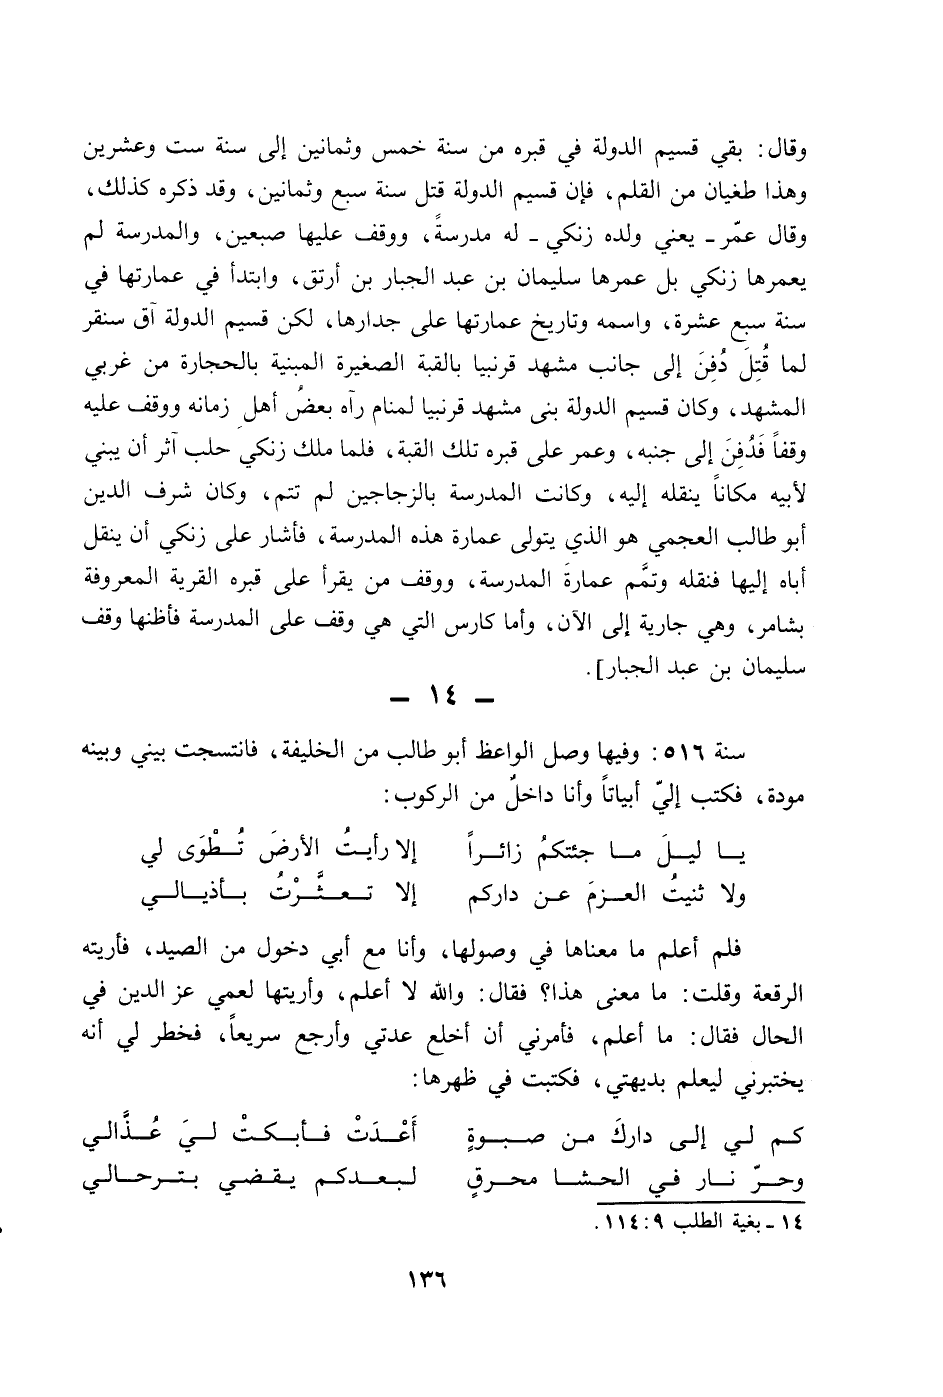 وقال: بقي قسيم الدولة في قبره من سنة خمس وثمانين إلى سنة ست وعشرين
وهذا طغيان من القلم، فإن قسيم الدولة قتل سنة سبع وثمانين، وقد ذكره كذلك،
وقال عمّر ـ يعني ولده زنكي ـ له مدرسةً، ووقف عليها ضيعتين، والمدرسة لم
يعمرها زنكي بل عمرها سليمان بن عبد الجبار بن أرتق، وابتدأ في عمارتها في
سنة سبع عشرة، واسمه وتاريخ عمارتها على جدارها، لكن قسيم الدولة آق سنقر
لما قُتِلَ دُفِنَ إلى جانب مشهد قرنبيا بالقبة الصغيرة المبنية بالحجارة من غربي
المشهد، وكان قسيم الدولة بنى مشهد قرنبيا لمنام رآه بعضُ أهلِ زمانه ووقف عليه
وقفاً فَدُفِنَ إلى جنبه، وعمر على قبره تلك القبة، فلما ملك زنكي حلب آثر أن يبني
لأبيه مكاناً ينقله إليه، وكانت المدرسة بالزجاجين لم تتم، وكان شرف الدين
أبو طالب العجمي هو الذي يتولى عمارة هذه المدرسة، فأشار على زنكي أن ينقل
أباه إليها فنقله وتمَّم عمارةَ المدرسة، ووقف من يقرأ على قبره القرية المعروفة
بشامر، وهي جارية إلى الآن، وأما كارس التي هي وقف على المدرسة فأظنها وقف
سليمان بن عبد الجبار].
– ١٤ –
سنة ٥١٦: وفيها وصل الواعظ أبو طالب من الخليفة، فانتسجت بيني وبينه
مودة، فكتب إليّ أبياتاً وأنا داخلٌ من الركوب:
يا ليلَ ما جئتكمُ زائراً إلا رأيتُ الأرضَ تُطْوَى لي
ولا ثنيتُ العزمَ عن داركم إلا تعثَّرْتُ بأذيالي
فلم أعلم ما معناها في وصولها، وأنا مع أبي دخول من الصيد، فأريته
الرقعة وقلت: ما معنى هذا؟ فقال: والله لا أعلم، وأريتها لعمي عز الدين في
الحال فقال: ما أعلم، فأمرني أن أخلع عدتي وأرجع سريعاً، فخطر لي أنه
يختبرني ليعلم بديهتي، فكتبت في ظهرها:
كم لي إلى داركَ من صبوةٍ أَعْدَتْ فأبكتْ ليَ عُذَّالي
وحرّ نار في الحشا محرقٍ لبعدكم يقضي بترحالي
١٤ ـ بغية الطلب ٩: ١١٤.
١٣٦